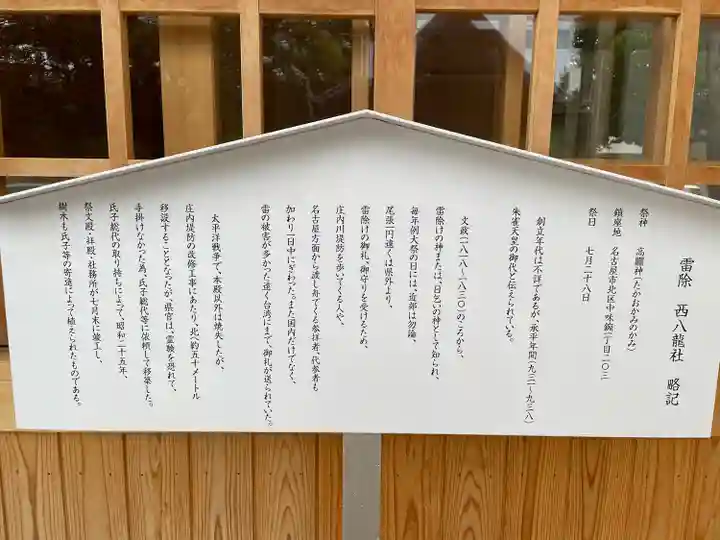 雷除　西八龍社　略記
祭神　高龗神(たかおかみのかみ)
鎮座地　名古屋市北区中味鋺一丁目二〇三
祭日　七月二十八日
創立年代は不詳であるが、承平年間(九三一～九三八)
朱雀天皇の御代と伝えられている。
文政(一八一八～一八三〇)のころから、
雷除けの神または、日乞いの神として知られ、
毎年例大祭の日には、近郷は勿論、
尾張一円遠くは県外より、
雷除けの御札、御守りを受けるため、
庄内川堤防を歩いてくる人や、
名古屋方面から渡し舟でくる参拝者、代参者も
加わり一日中にぎわった。また国内だけでなく、
雷の被害が多かった遠く台湾にまで、御札が送られていた。
太平洋戦争で、本殿以外は焼失したが、
庄内堤防の改修工事にあたり、北へ約五十メートル
移設することとなったが、県官は、霊験を恐れて、
手掛けなかった為、氏子総代等に依頼して移築した。
氏子総代の取り持ちによって、昭和二十五年、
祭文殿・拝殿・社務所が七月末に竣工し、
樹木も氏子等の寄進によって植えられたものである。